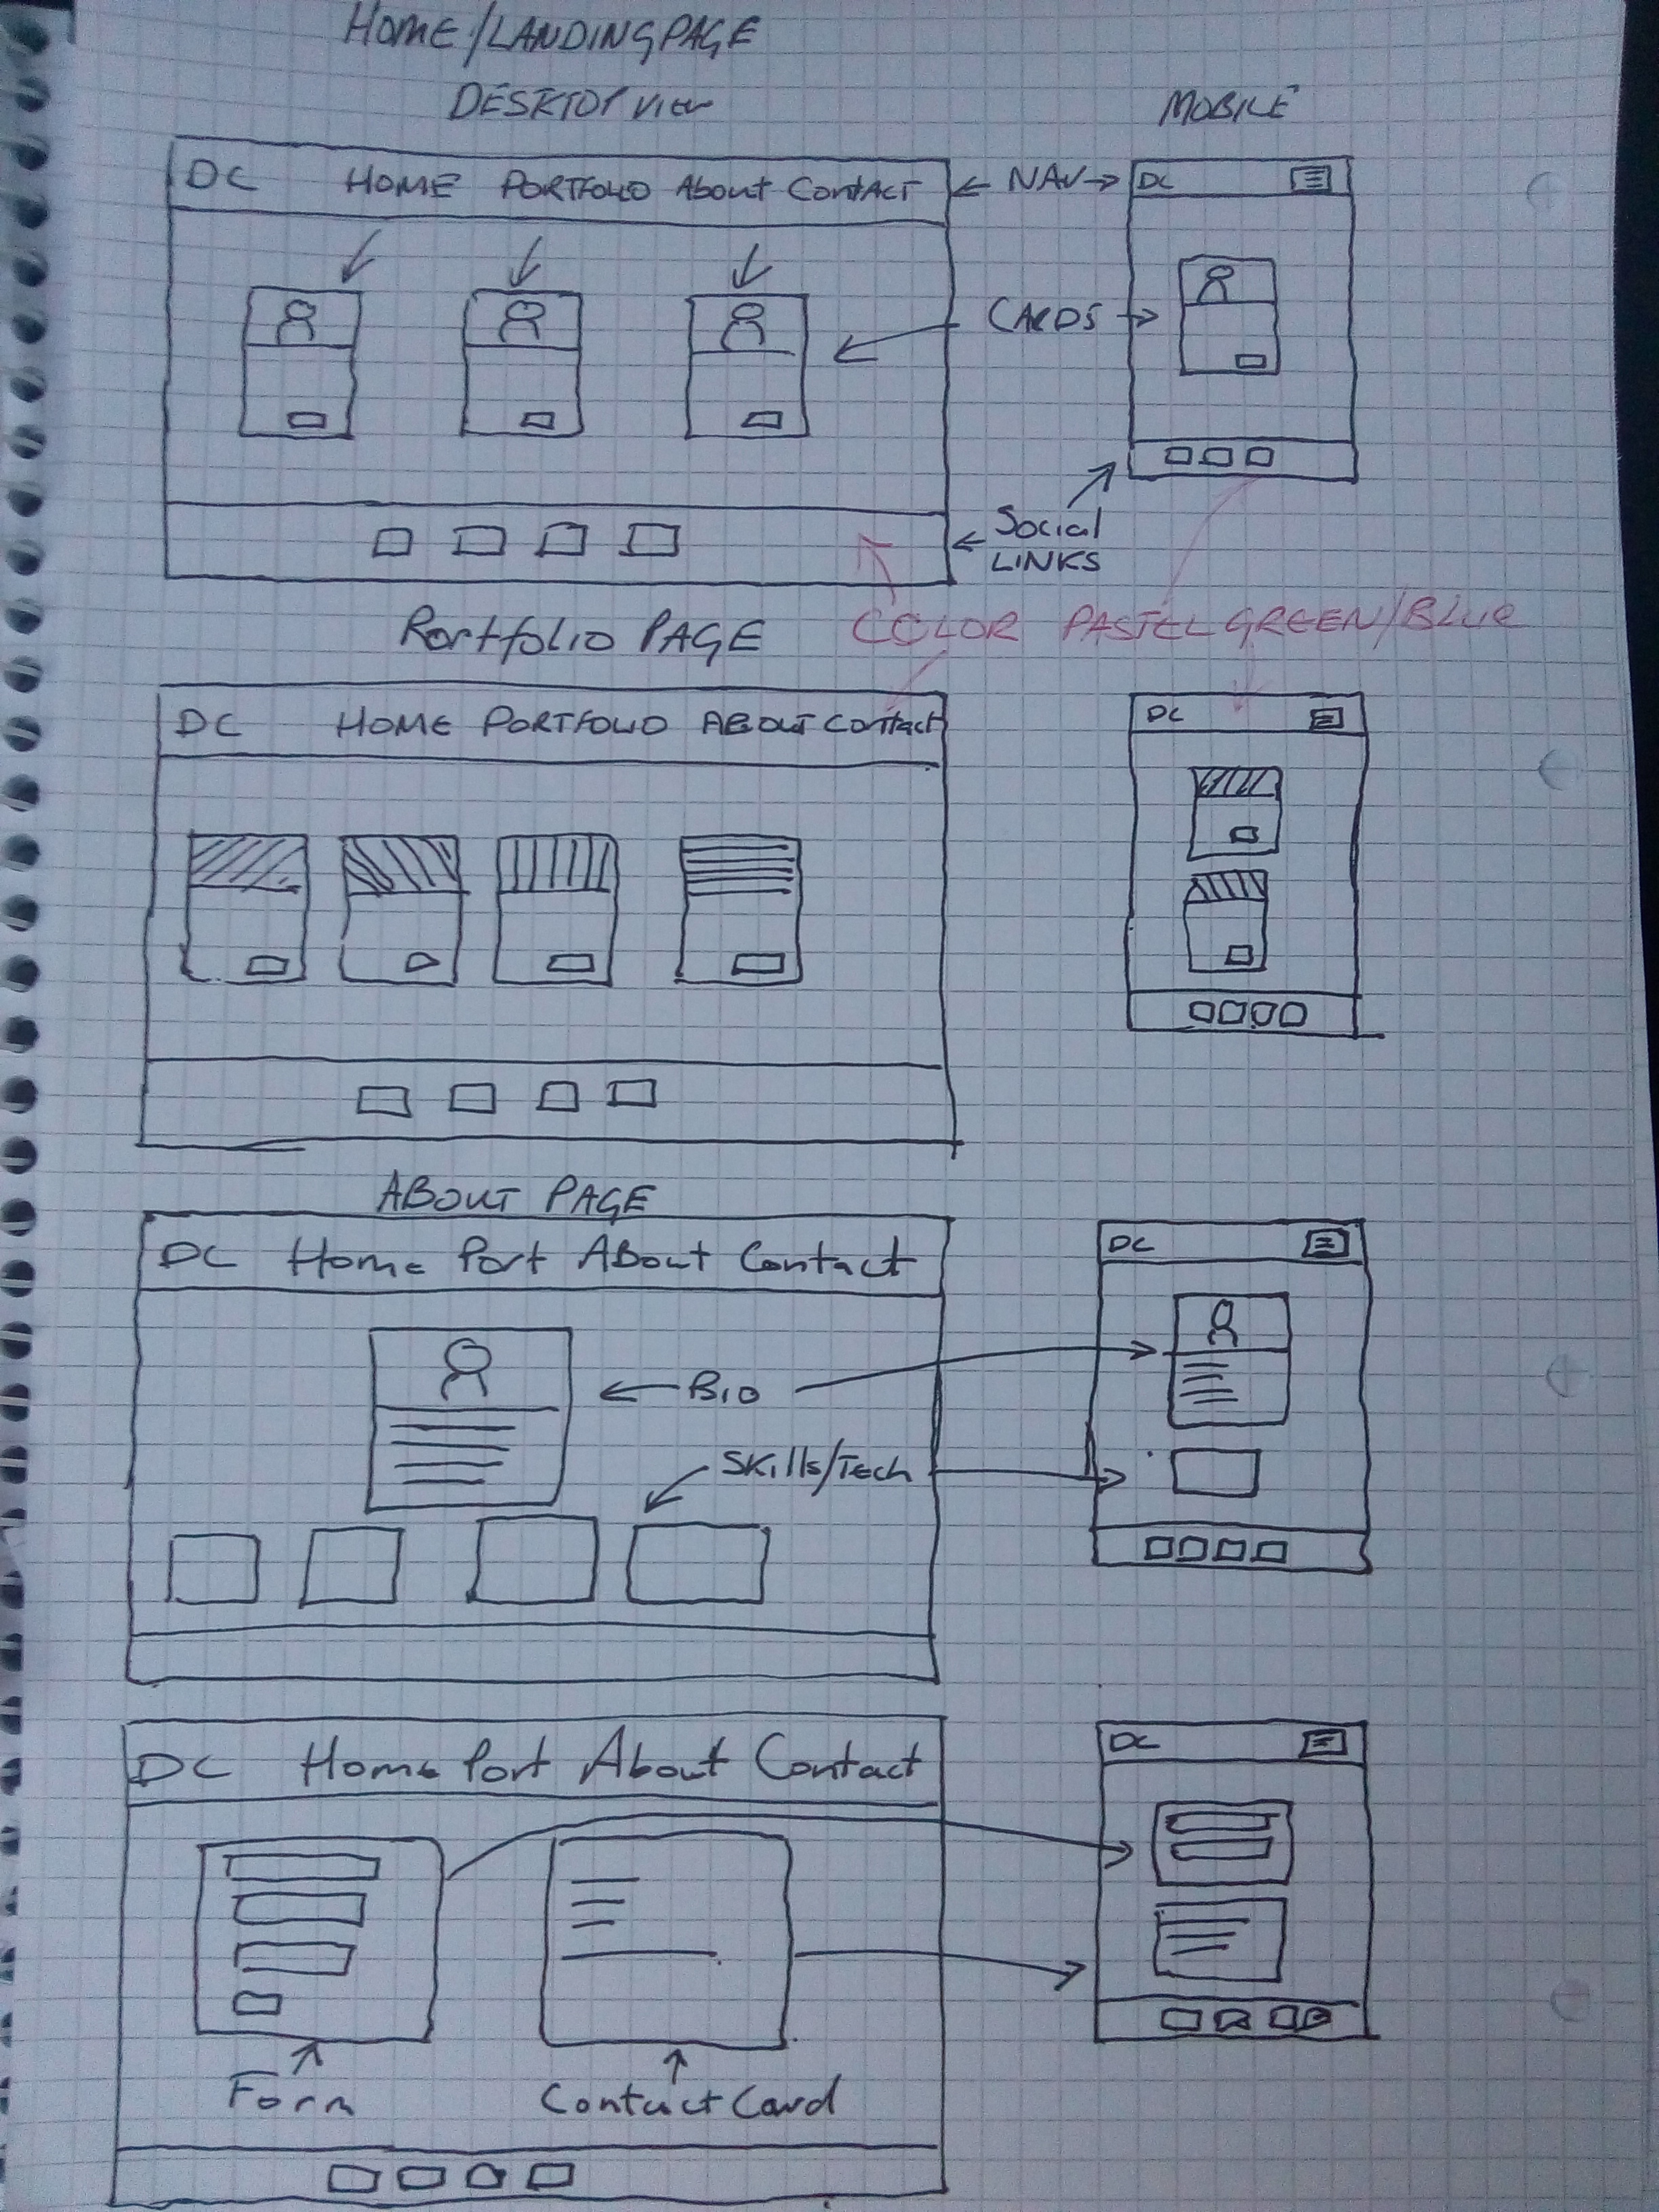 HOME/LANDINGPAGE
DESKTOP view
MOBILE
DC HOME PORTFOLIO About ContAct
NAV
DC
CARDS
Social
LINKS
COLOR PASTEL GREEN/BLue
Portfolio PAGE
DC HOME PORTFOLIO ABOUT Contact
DC
ABOUT PAGE
DC Home Port ABout Contact
DC
BIO
SKills/Tech
DC Home Port About Contact
DC
Form
Contact Card